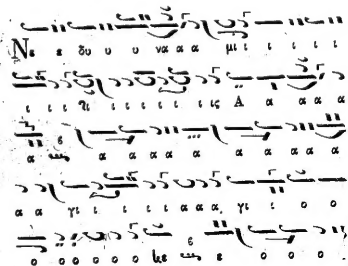 Νε ε δυ υ υ να α α α μι ι ι ι ι ι
ι ι ι τι ι ι ι ι ι ις Α α α α α
α α α α α α α α α α
α α γι ι ι ι α α α γι ι ο ο
ο ο ο ο ο ε ο ο ο